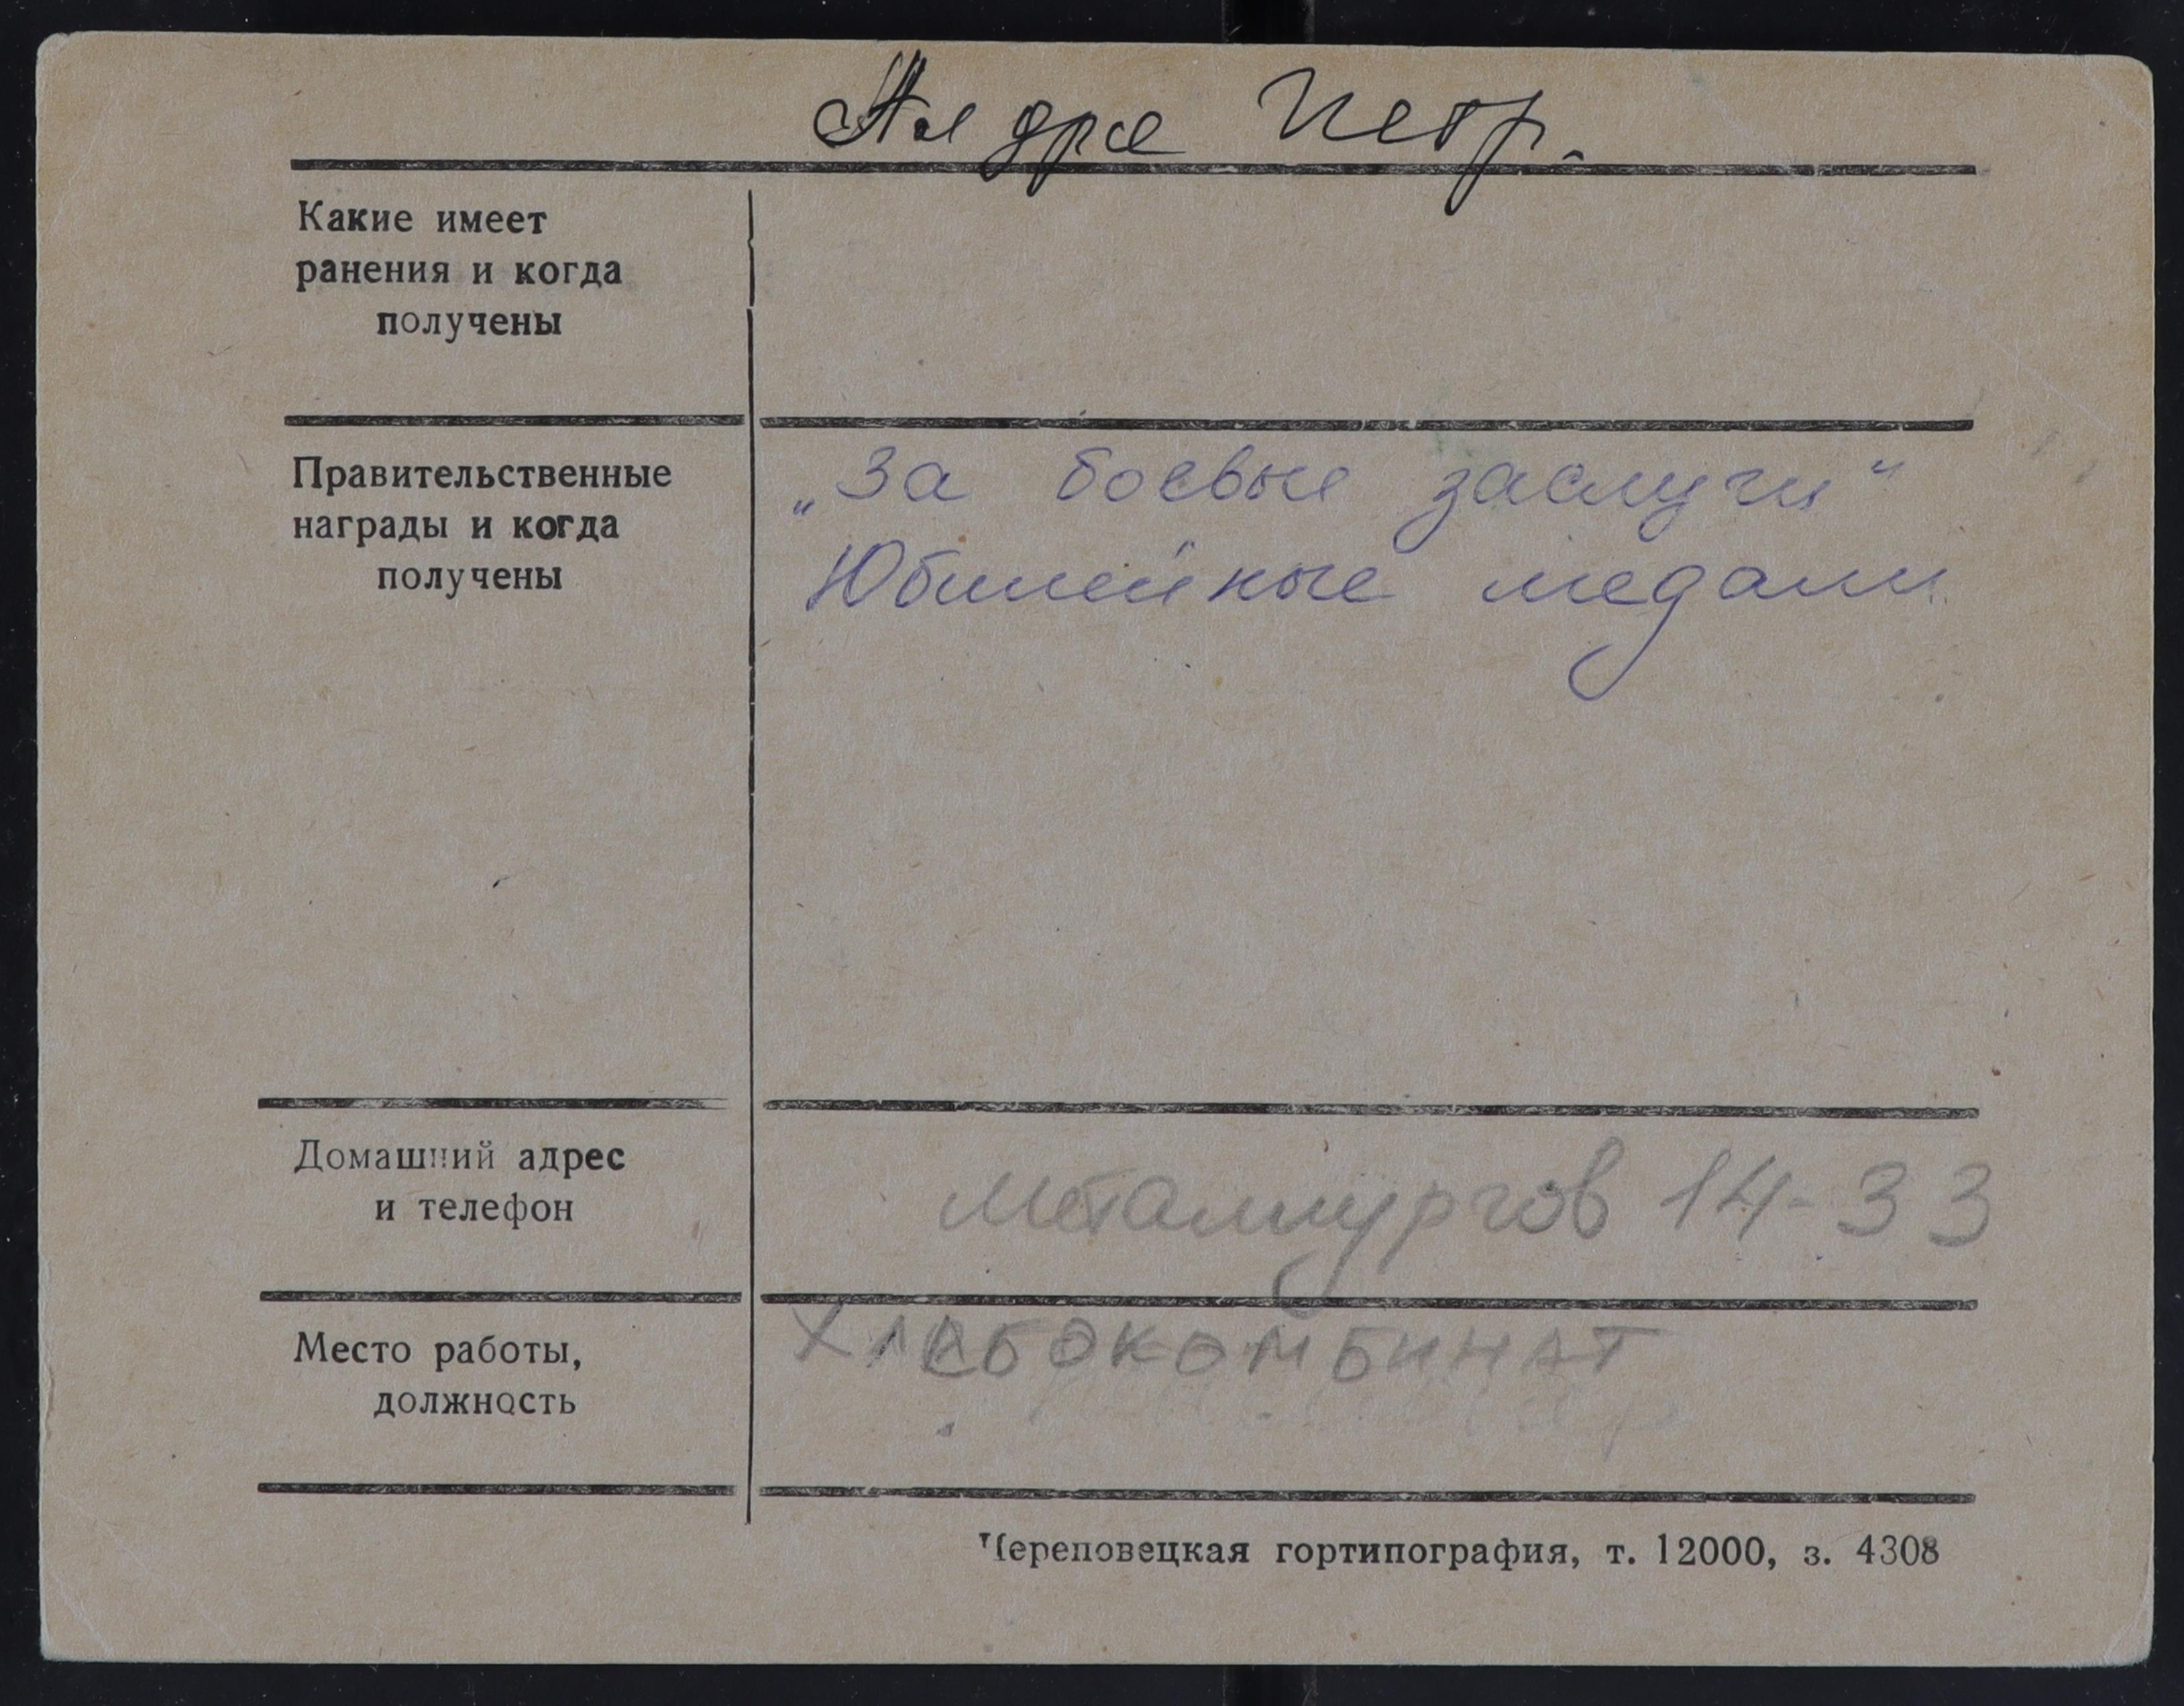 Петр.
Какие имеет
ранения и когда
получены
Правительственные
награды и когда
получены
„За боевые заслуги"
Юбилейные медали
Домашний адрес
и телефон
Металлургов 14-33
Место работы,
должность
ХЛЕБОКОМБИНАТ
Череповецкая гортипография, т. 12000, з. 4308